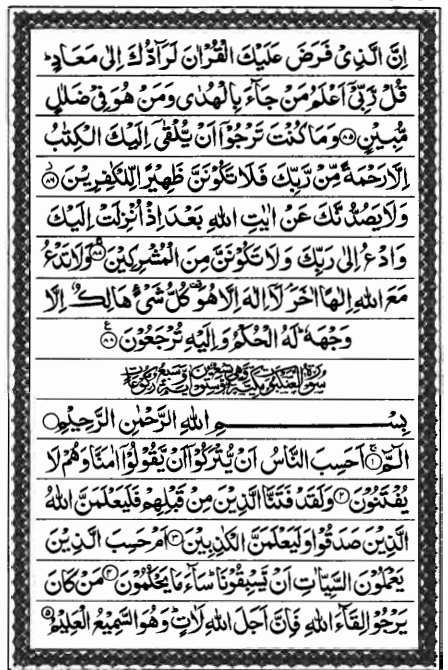 اِنَّ الَّذِىۡ فَرَضَ عَلَيۡكَ الۡقُرۡاٰنَ لَرَآدُّكَ اِلٰى مَعَادٍ ؕ
قُلْ رَّبِّىۡۤ اَعۡلَمُ مَنۡ جَآءَ بِالۡهُدٰى وَمَنۡ هُوَ فِىۡ ضَلٰلٍ
مُّبِيۡنٍ ﴿۸۵﴾ وَمَا كُنۡتَ تَرۡجُوۡۤا اَنۡ يُّلۡقٰٓى اِلَيۡكَ الۡكِتٰبُ
اِلَّا رَحۡمَةً مِّنۡ رَّبِّكَ فَلَا تَكُوۡنَنَّ ظَهِيۡرًا لِّلۡكٰفِرِيۡنَ ﴿۸۶﴾
وَلَا يَصُدُّنَّكَ عَنۡ اٰيٰتِ اللّٰهِ بَعۡدَ اِذۡ اُنۡزِلَتۡ اِلَيۡكَ
وَادۡعُ اِلٰى رَبِّكَ وَلَا تَكُوۡنَنَّ مِنَ الۡمُشۡرِكِيۡنَ ﴿۸۷﴾ وَلَا تَدۡعُ
مَعَ اللّٰهِ اِلٰهًا اٰخَرَ ۘ لَاۤ اِلٰهَ اِلَّا هُوَ ۟ كُلُّ شَىۡءٍ هَالِكٌ اِلَّا
وَجۡهَهٗ ؕ لَهُ الۡحُكۡمُ وَاِلَيۡهِ تُرۡجَعُوۡنَ ﴿۸۸﴾
سُوۡرَةُ الۡعَنۡكَبُوۡتِ مَكِّيَّةٌ
بِسۡمِ اللّٰهِ الرَّحۡمٰنِ الرَّحِيۡمِ
الٓمّٓ ﴿۱﴾ اَحَسِبَ النَّاسُ اَنۡ يُّتۡرَكُوۡۤا اَنۡ يَّقُوۡلُوۡۤا اٰمَنَّا وَهُمۡ لَا
يُفۡتَنُوۡنَ ﴿۲﴾ وَلَقَدۡ فَتَنَّا الَّذِيۡنَ مِنۡ قَبۡلِهِمۡ فَلَيَعۡلَمَنَّ اللّٰهُ
الَّذِيۡنَ صَدَقُوۡا وَلَيَعۡلَمَنَّ الۡكٰذِبِيۡنَ ﴿۳﴾ اَمۡ حَسِبَ الَّذِيۡنَ
يَعۡمَلُوۡنَ السَّيِّاٰتِ اَنۡ يَّسۡبِقُوۡنَا ؕ سَآءَ مَا يَحۡكُمُوۡنَ ﴿۴﴾ مَنۡ كَانَ
يَرۡجُوۡا لِقَآءَ اللّٰهِ فَاِنَّ اَجَلَ اللّٰهِ لَاٰتٍ ؕ وَهُوَ السَّمِيۡعُ الۡعَلِيۡمُ ﴿۵﴾